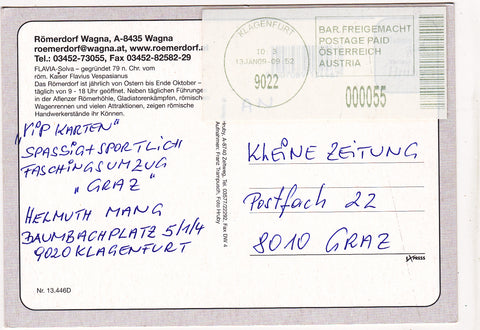 Römerdorf Wagna, A-8435 Wagna
roemerdorf@wagna.at, www.roemerdorf.a
Tel.: 03452-73055, Fax 03452-82582-29
FLAVIA-Solva – gegründet 79 n. Chr. vom
röm. Kaiser Flavius Vespasianus
Das Römerdorf ist jährlich von Ostern bis Ende Oktober –
täglich von 9 - 18 Uhr geöffnet. Neben täglichen Führunge
in der Allenzer Römerhöhle, Gladiatorenkämpfen, römisch
Wagenrennen und vielen Attraktionen, zeigen römische
Handwerkerstände ihr Können.
"VIP KARTEN"
SPASSIG + SPORTLICH
FASCHINGSUMZUG
"GRAZ"
HELMUTH MANG
BAUMBACHPLATZ 5/1/4
9020 KLAGENFURT
Nr. 13.446D
Huby, A-8740 Zeltweg, Tel. 03577/22292, Fax DW 4
Aufnahmen: Franz Trampusch, Foto Huby
KLAGENFURT
13JAN09-09 52
9022
BAR.FREIGEMACHT
POSTAGE PAID
ÖSTERREICH
AUSTRIA
000055
KLEINE ZEITUNG
Postfach 22
8010 GRAZ
EXPRESS